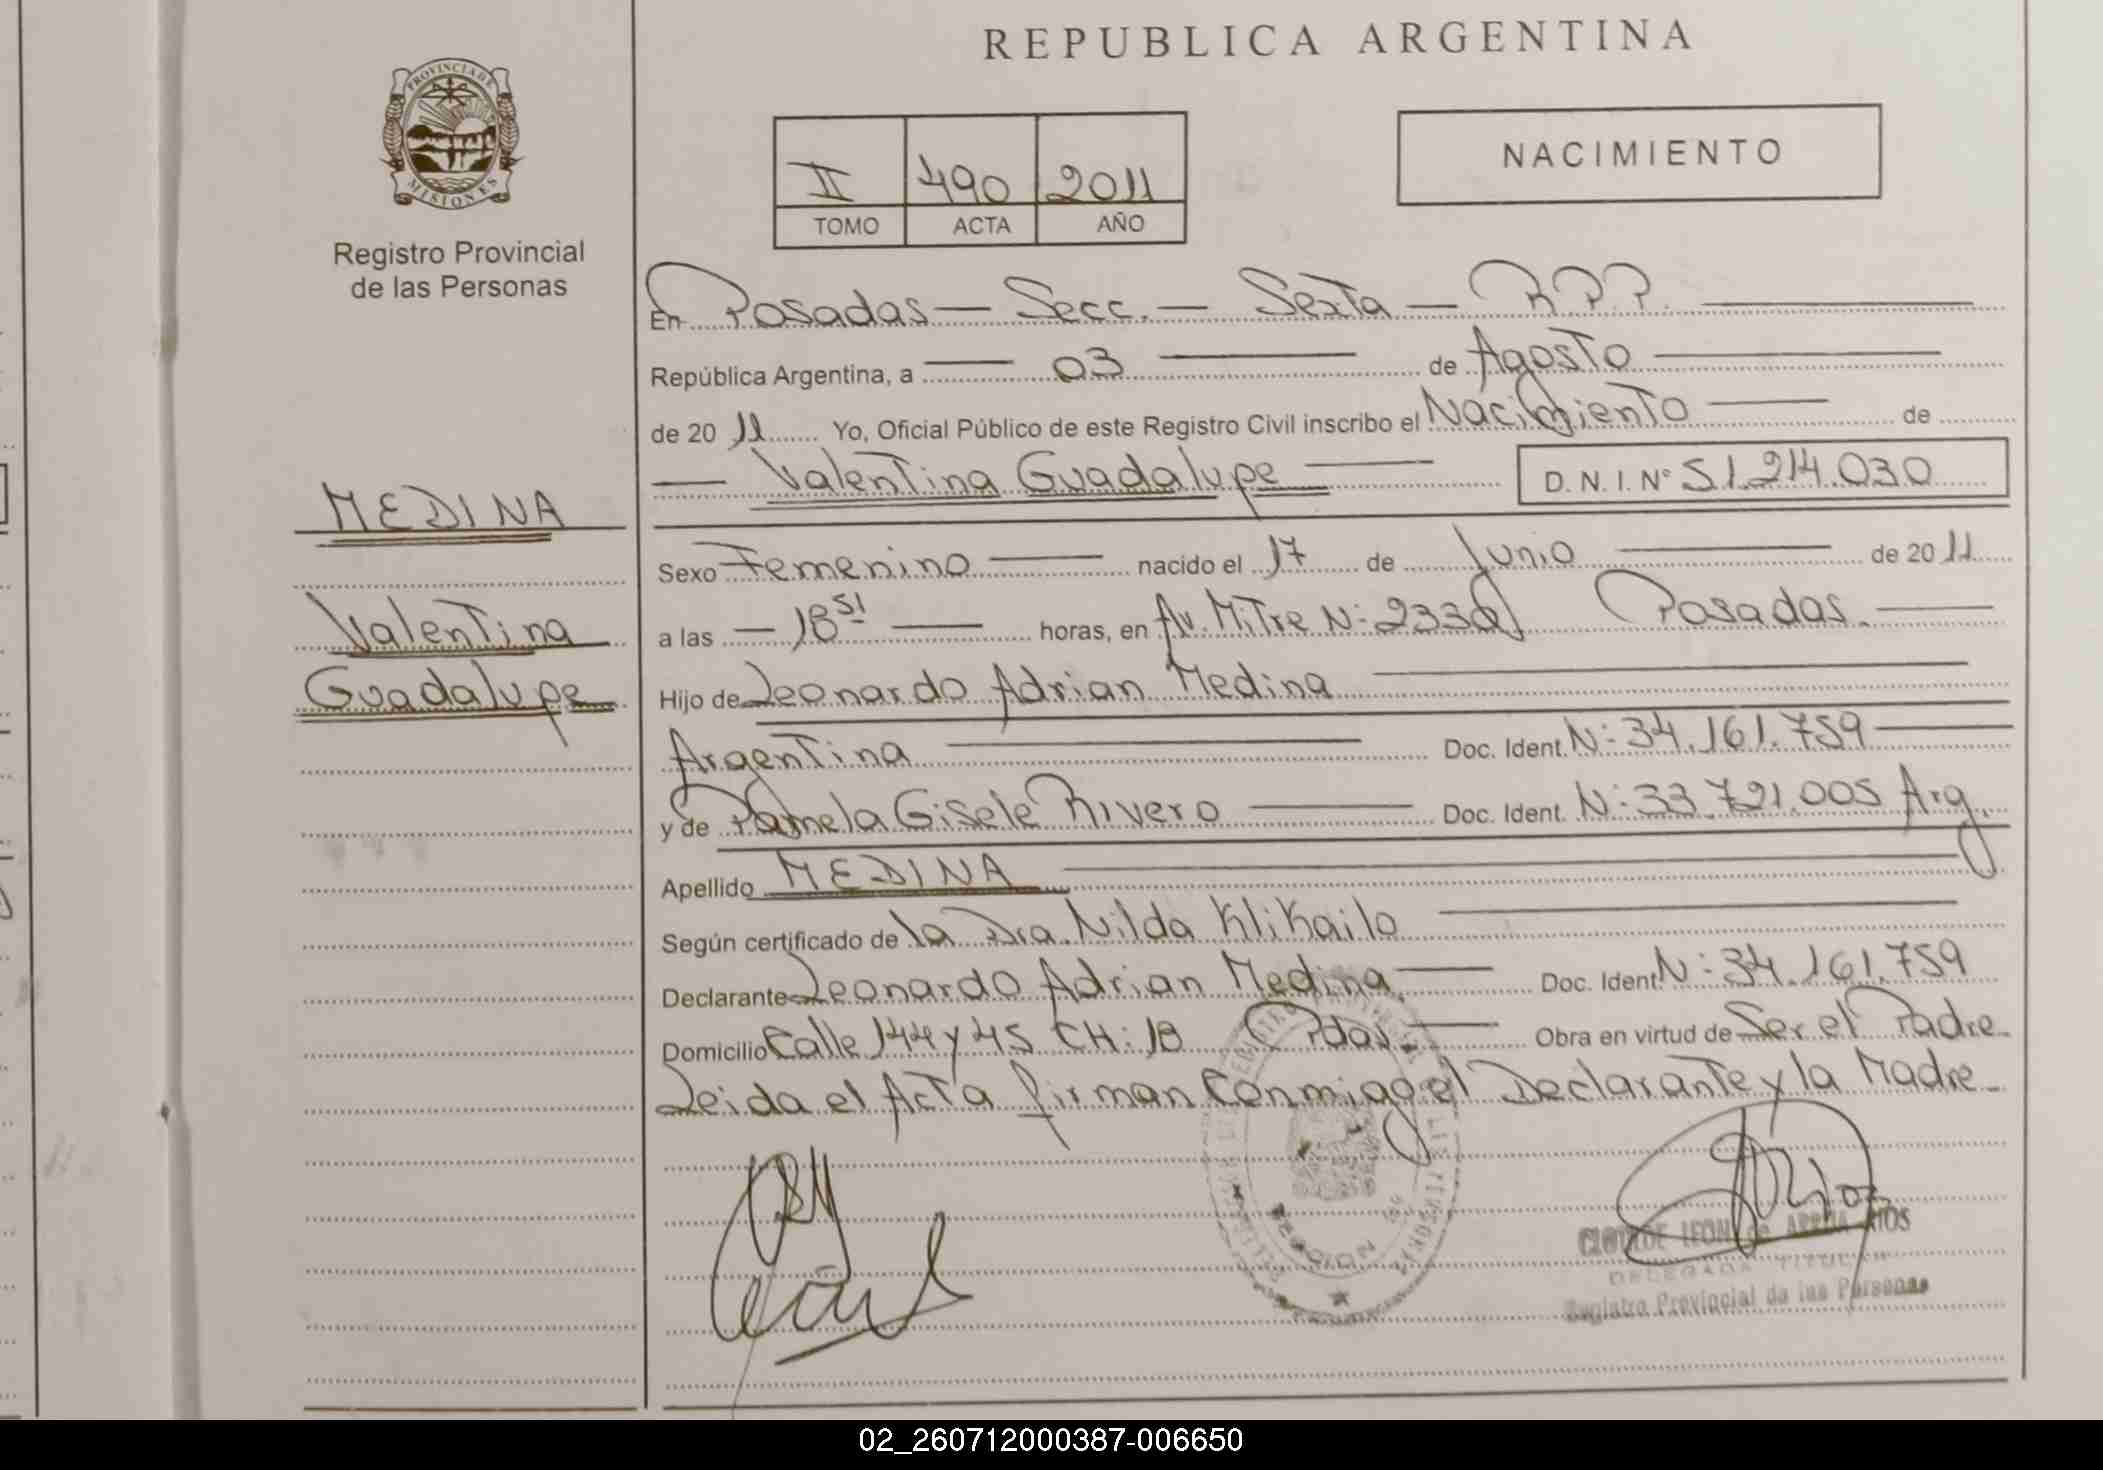 REPUBLICA ARGENTINA
PROVINCIA DE
MISIONES
Registro Provincial
de las Personas
II 490 2011
TOMO ACTA AÑO
NACIMIENTO
En Posadas — Secc. — Sexta — R.P.P.
República Argentina, a — 03 — de Agosto
de 20 11 Yo, Oficial Público de este Registro Civil inscribo el Nacimiento — de
— Valentina Guadalupe — D. N. I. Nº 51.214.030
MEDINA
Valentina
Guadalupe
Sexo Femenino — nacido el 17 de Junio — de 20 11
a las — 18 51 — horas, en Av. Mitre N: 2332 Posadas. —
Hijo de Leonardo Adrian Medina —
Argentina — Doc. Ident. N: 34.161.759 —
y de Pamela Gisele Rivero — Doc. Ident. N: 33.721.005 Arg.
Apellido MEDINA —
Según certificado de la Dra. Nilda Klikailo —
Declarante Leonardo Adrian Medina. — Doc. Ident. N: 34.161.759
Domicilio Calle 144 y 45 CH: 18 Pdas. — Obra en virtud de Ser el Padre
Leida el Acta firman Conmigo el Declarante y la Madre
CLOTILDE LEON de
DELEGADA TITULAR
Registro Provincial de las Personas
02_260712000387-006650